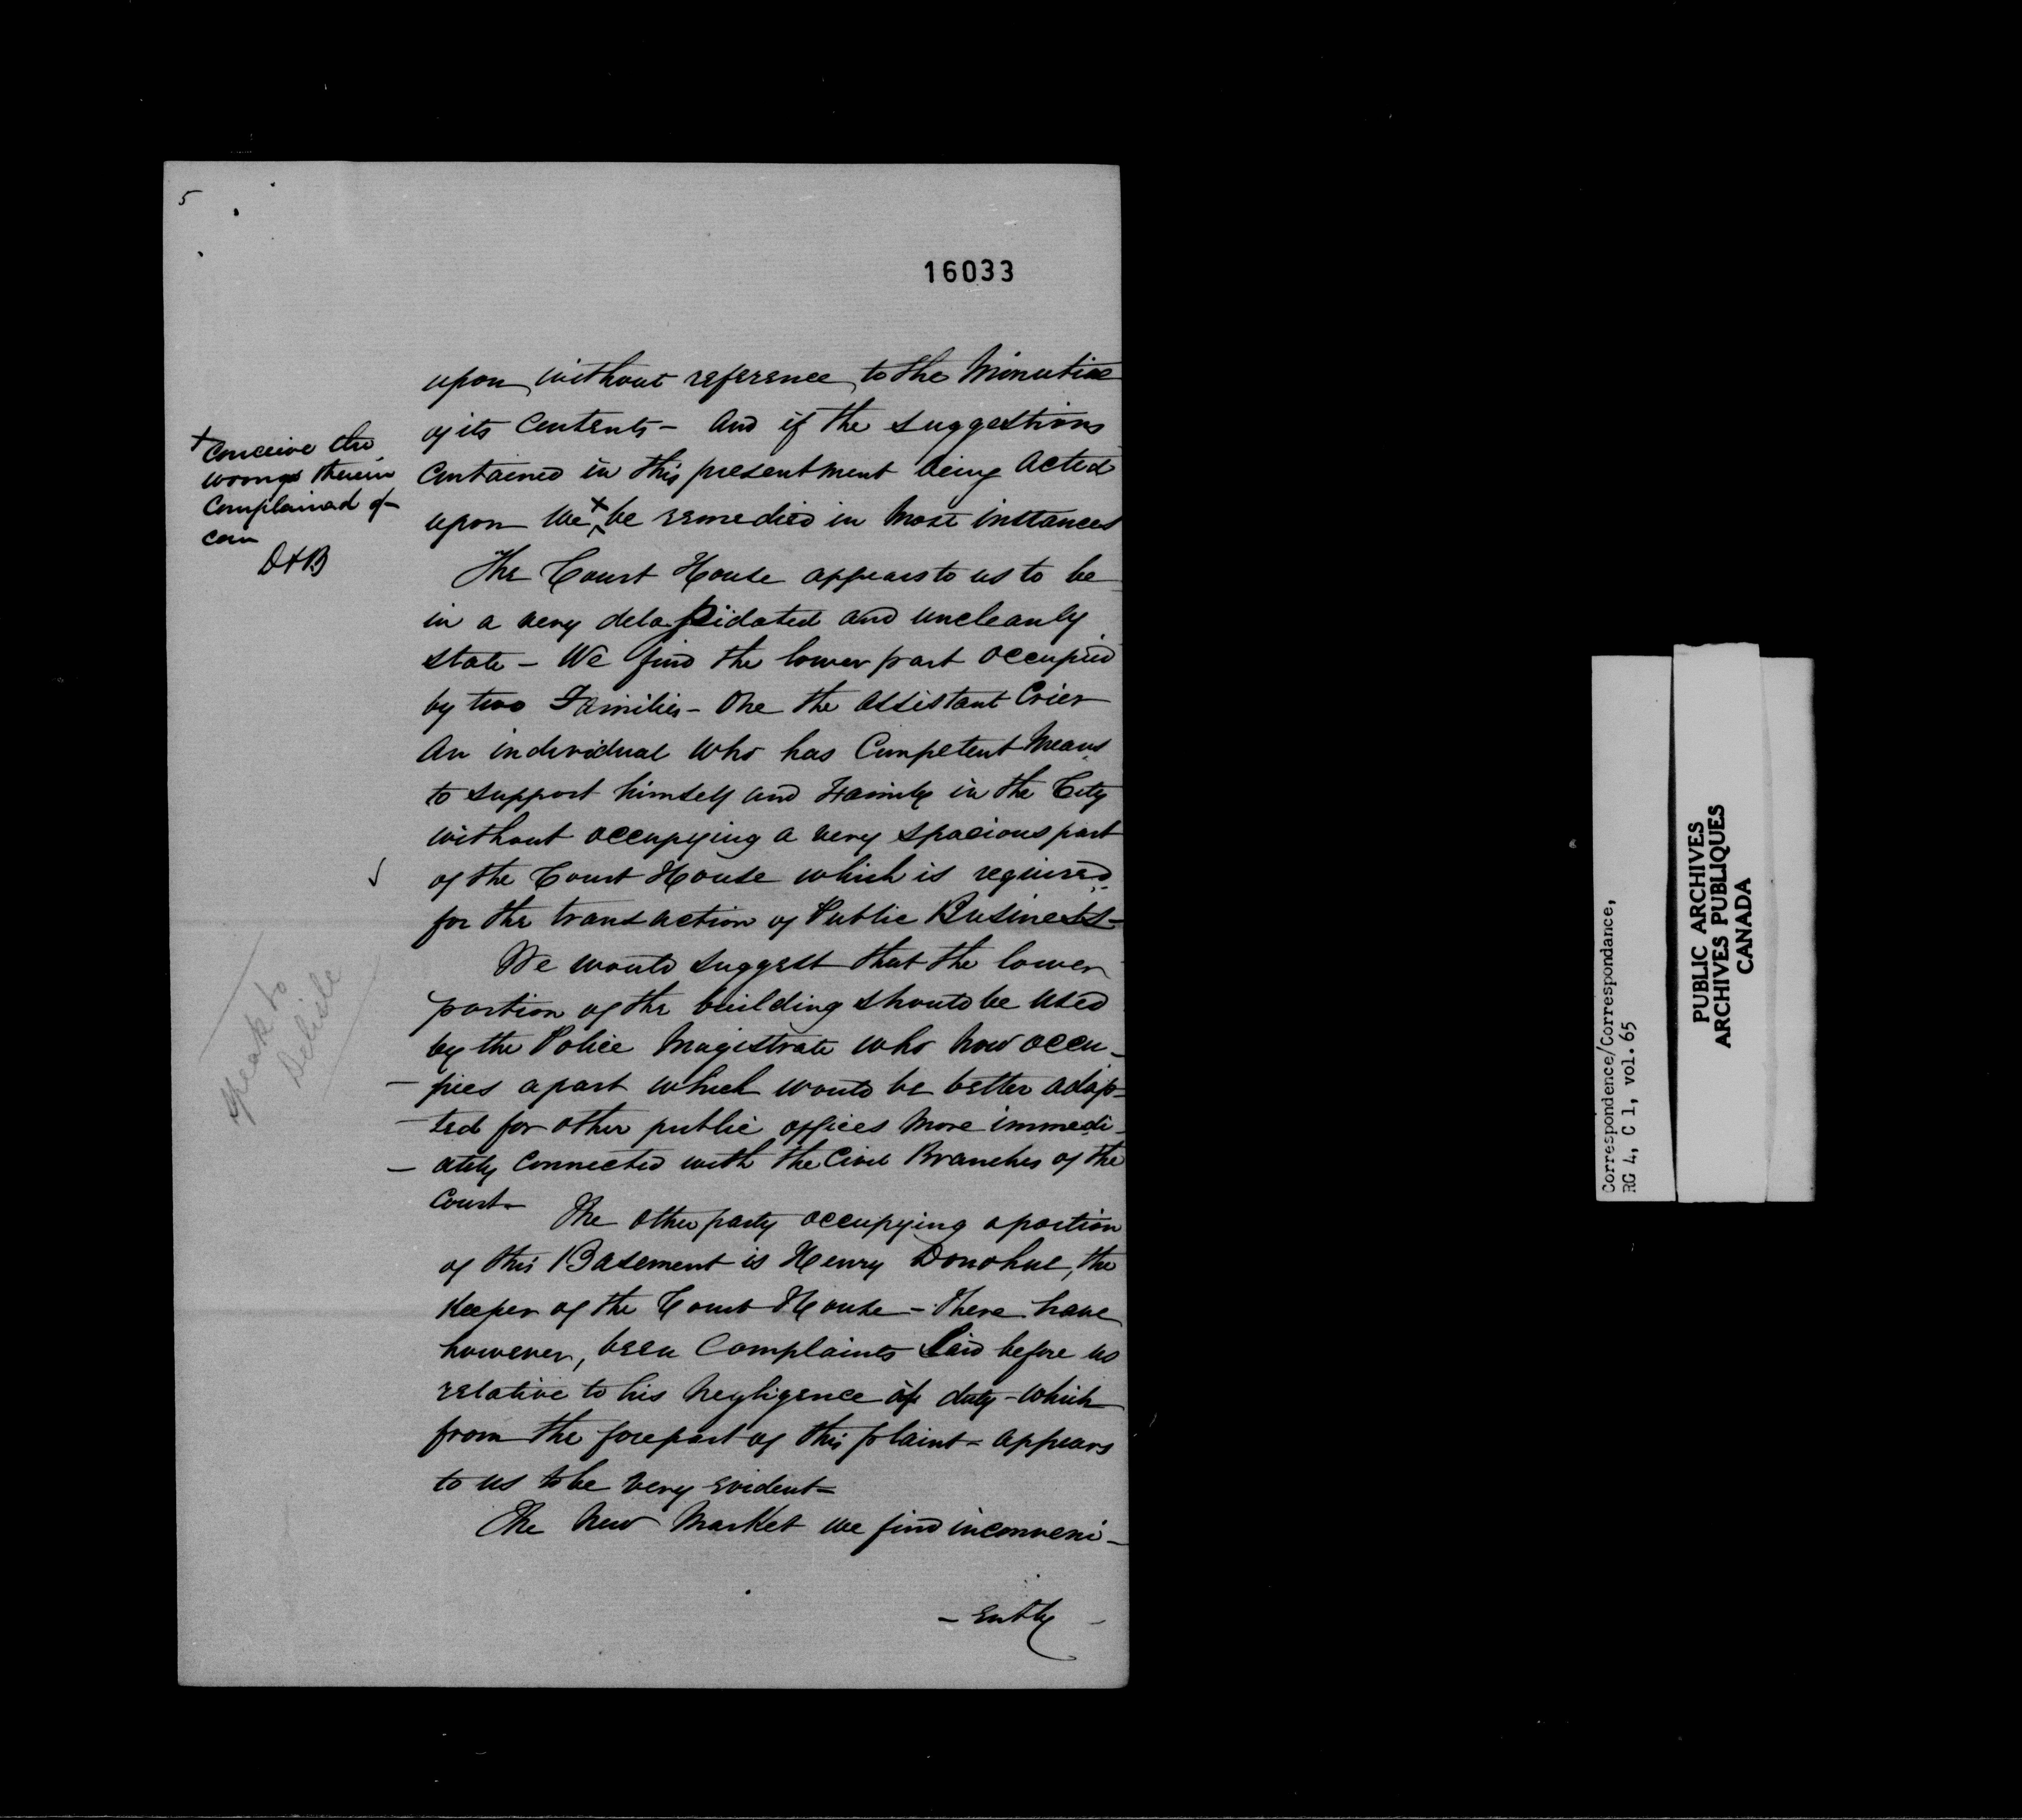 5
16033
upon without reference to the Minutiae
of its Contents - And if the suggestions
Contained in this presentment being Acted
upon We + be remedied in Most instances
+ Conceive the
wrongs therein
Complained of
can
D+B
The Court House appears to us to be
in a very delapidated and uncleanly
state - We find the lower part occupied
by two Families - One the Assistant Crier
An individual Who has Competent Means
to support himself and Family in the City
without occupying a very spacious part
of the Court House which is required
for the transaction of Public Business -
We would suggest that the lower
portion of the building should be Used
by the Police Magistrate who now occu-
- pies a part which would be better adap-
- ted for other public offices More immedi-
- ately Connected with the Civil Branches of the
Court -
speak to
Delisle
The other party occupying a portion
of this Basement is Henry Donohue, the
Keeper of the Court House - There have
however, been Complaints Laid before us
relative to his Negligence of duty - Which
from the forepart of this plaint - appears
to us to be Very Evident -
The New Market we find inconveni-
- ently -
Correspondence/Correspondance,
RG 4, C 1, vol. 65
PUBLIC ARCHIVES
ARCHIVES PUBLIQUES
CANADA